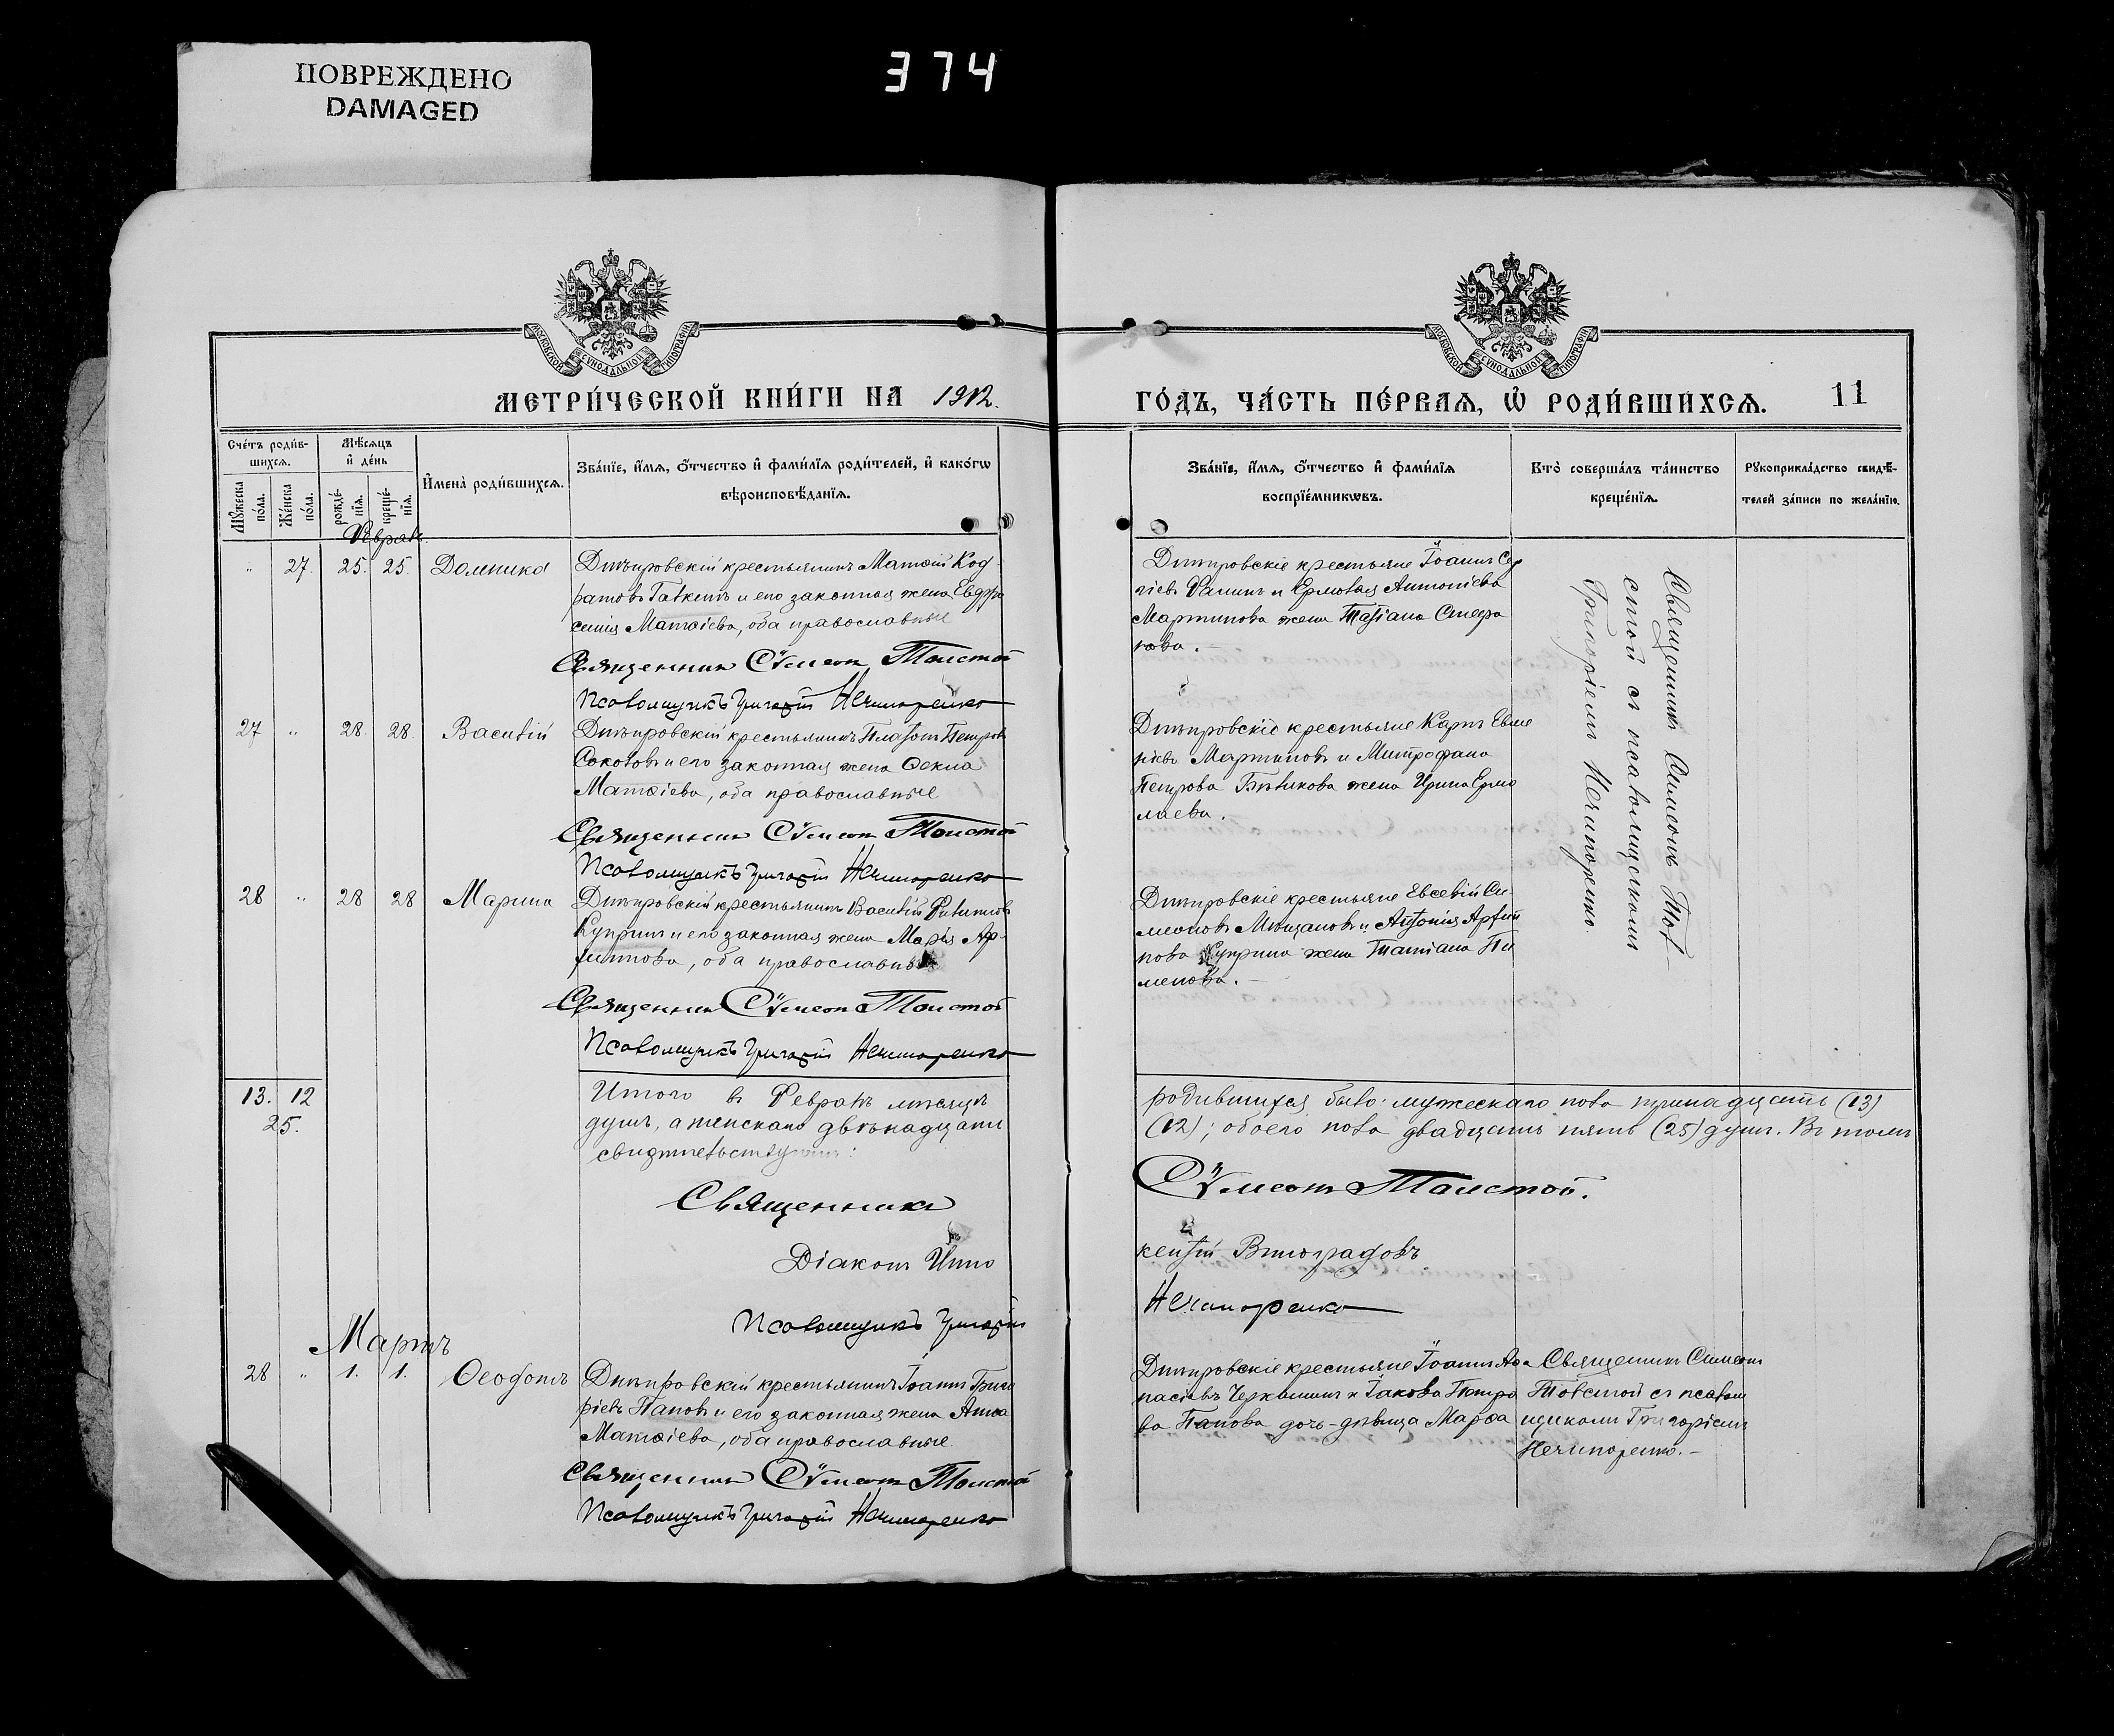 ПОВРЕЖДЕНО
DAMAGED
374
МОСКОВСКОЙ СѴНОДАЛЬНОЙ ТИПОГРАФІИ
МОСКОВСКОЙ СѴНОДАЛЬНОЙ ТИПОГРАФІИ
МЕТРИ́ЧЕСКОЙ КНИ́ГИ НА 1912.
ГО́ДЪ, ЧА́СТЬ ПЕ́РВАЯ, Ѡ҆ РОДИ́ВШИХСЯ.
11
Сче́тъ роди́в-
шихся.
Мꙋ́жеска по́ла.
Же́нска по́ла.
Мѣ́сяцъ
и҆ де́нь
рожде́-нїя.
креще́-нїя.
И҆мена̀ роди́вшихся.
Зва́нїе, и҆́мя, о҆́тчество и҆ фами́лїя роди́телей, и҆ како́гѡ
вѣроисповѣ́данїя.
Зва́нїе, и҆́мя, о҆́тчество и҆ фами́лїя
воспрїе́мникѡвъ.
Кто̀ соверша́лъ та́инство
креще́нїя.
Рꙋкоприкла́дство свидѣ́-
телей за́писи по жела́нїю.
Февраль.
" 27. 25. 25. Домника
Днѣпровскій крестьянинъ Матѳій Код-
ратовъ Галкинъ и его законная жена Евдро
синія Матѳіева, оба православные
Священникъ Сѵмеонъ Толстой
Псаломщикъ Григорій Нечипоренко
Днѣпровскіе крестьяне Іоаннъ Сер
гіевъ Ѳанинъ и Ермолая Антоніева
Мартинова жена Татіана Стефа
нова.
Священникъ Симеонъ Тол-
стой съ псаломщикомъ
Григоріемъ Нечипоренко.
27 " 28. 28 Василій
Днѣпровскій крестьянинъ Платонъ Петровъ
Соколовъ и его законная жена Ѳекла
Матѳіева, оба православные
Священникъ Сѵмеонъ Толстой
Псаломщикъ Григорій Нечипоренко
Днѣпровскіе крестьяне Карпъ Евме
ніевъ Мартиновъ и Митрофана
Петрова Бѣликова жена Ирина Ермо
лаева.
28 " 28 28 Марина
Днѣпровскій крестьянинъ Василій Филиповъ
Купринъ и его законная жена Марія Ар-
хипова, оба православные
Священникъ Сѵмеонъ Толстой
Псаломщикъ Григорій Нечипоренко
Днѣпровскіе крестьяне Евсевій Си-
меоновъ Мѣщановъ и Антонія
нова Куприна жена Татіана Пи
менова.
13. 12
25.
Итого въ Февралѣ мѣсяцѣ
родившихся было: мужескаго пола тринадцать (13)
душъ, а женскаго двѣнадцать
(12); обоего пола двадцать пять (25) душъ. Въ томъ
свидѣтельствуютъ:
Священникъ
Сѵмеонъ Толстой.
Діаконъ Инно
кентій Виноградовъ
Псаломщикъ Григорій
Нечипоренко
Мартъ
28 " 1. 1. Ѳеодотъ
Днѣпровскій крестьянинъ Іоаннъ Григо
ріевъ Паповъ и его законная жена Анна
Матѳіева, оба православные.
Священникъ Сѵмеонъ Толстой
Псаломщикъ Григорій Нечипоренко
Днѣпровскіе крестьяне Іоаннъ Аѳа
насіевъ Черкашинъ и Іакова Петро
ва Папова дочь-дѣвица Марѳа
Священникъ Симеонъ
Толстой съ псалом
щикомъ Григоріемъ
Нечипоренко.